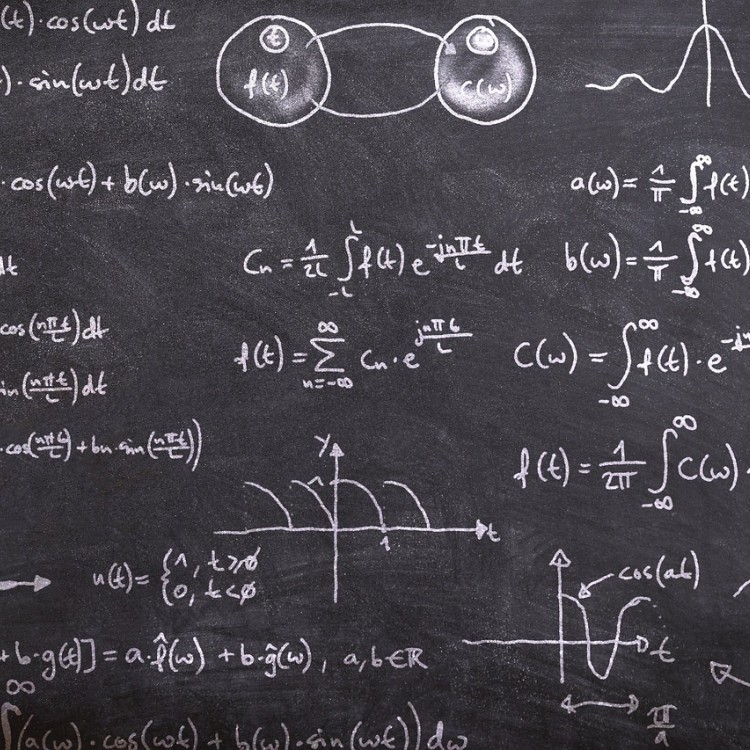 (t)·cos(ωt) dt
t f(t)
ω C(ω)
)·sin(ωt)dt
·cos(ωt) + b(ω)·sin(ωt)
a(ω) = 1/π ∫_{-∞}^{∞} f(t)
dt
C_n = 1/2L ∫_{-L}^{L} f(t) e^{-jnπt/L} dt
b(ω) = 1/π ∫_{-∞}^{∞} f(t)
cos(nπt/L)dt
f(t) = ∑_{n=-∞}^{∞} C_n·e^{jnπt/L}
C(ω) = ∫_{-∞}^{∞} f(t)·e^{-j
in(nπt/L)dt
·cos(nπt/L) + bn·sin(nπt/L))
f(t) = 1/2π ∫_{-∞}^{∞} C(ω)·
y
1
1
t
u(t) = {1, t≥0
{0, t<0
cos(at)
t
π/a
+b·g(t)] = a·f̂(ω) + b·ĝ(ω), a,b∈ℝ
∞
∫(a(ω)·cos(ωt) + b(ω)·sin(ωt))dω